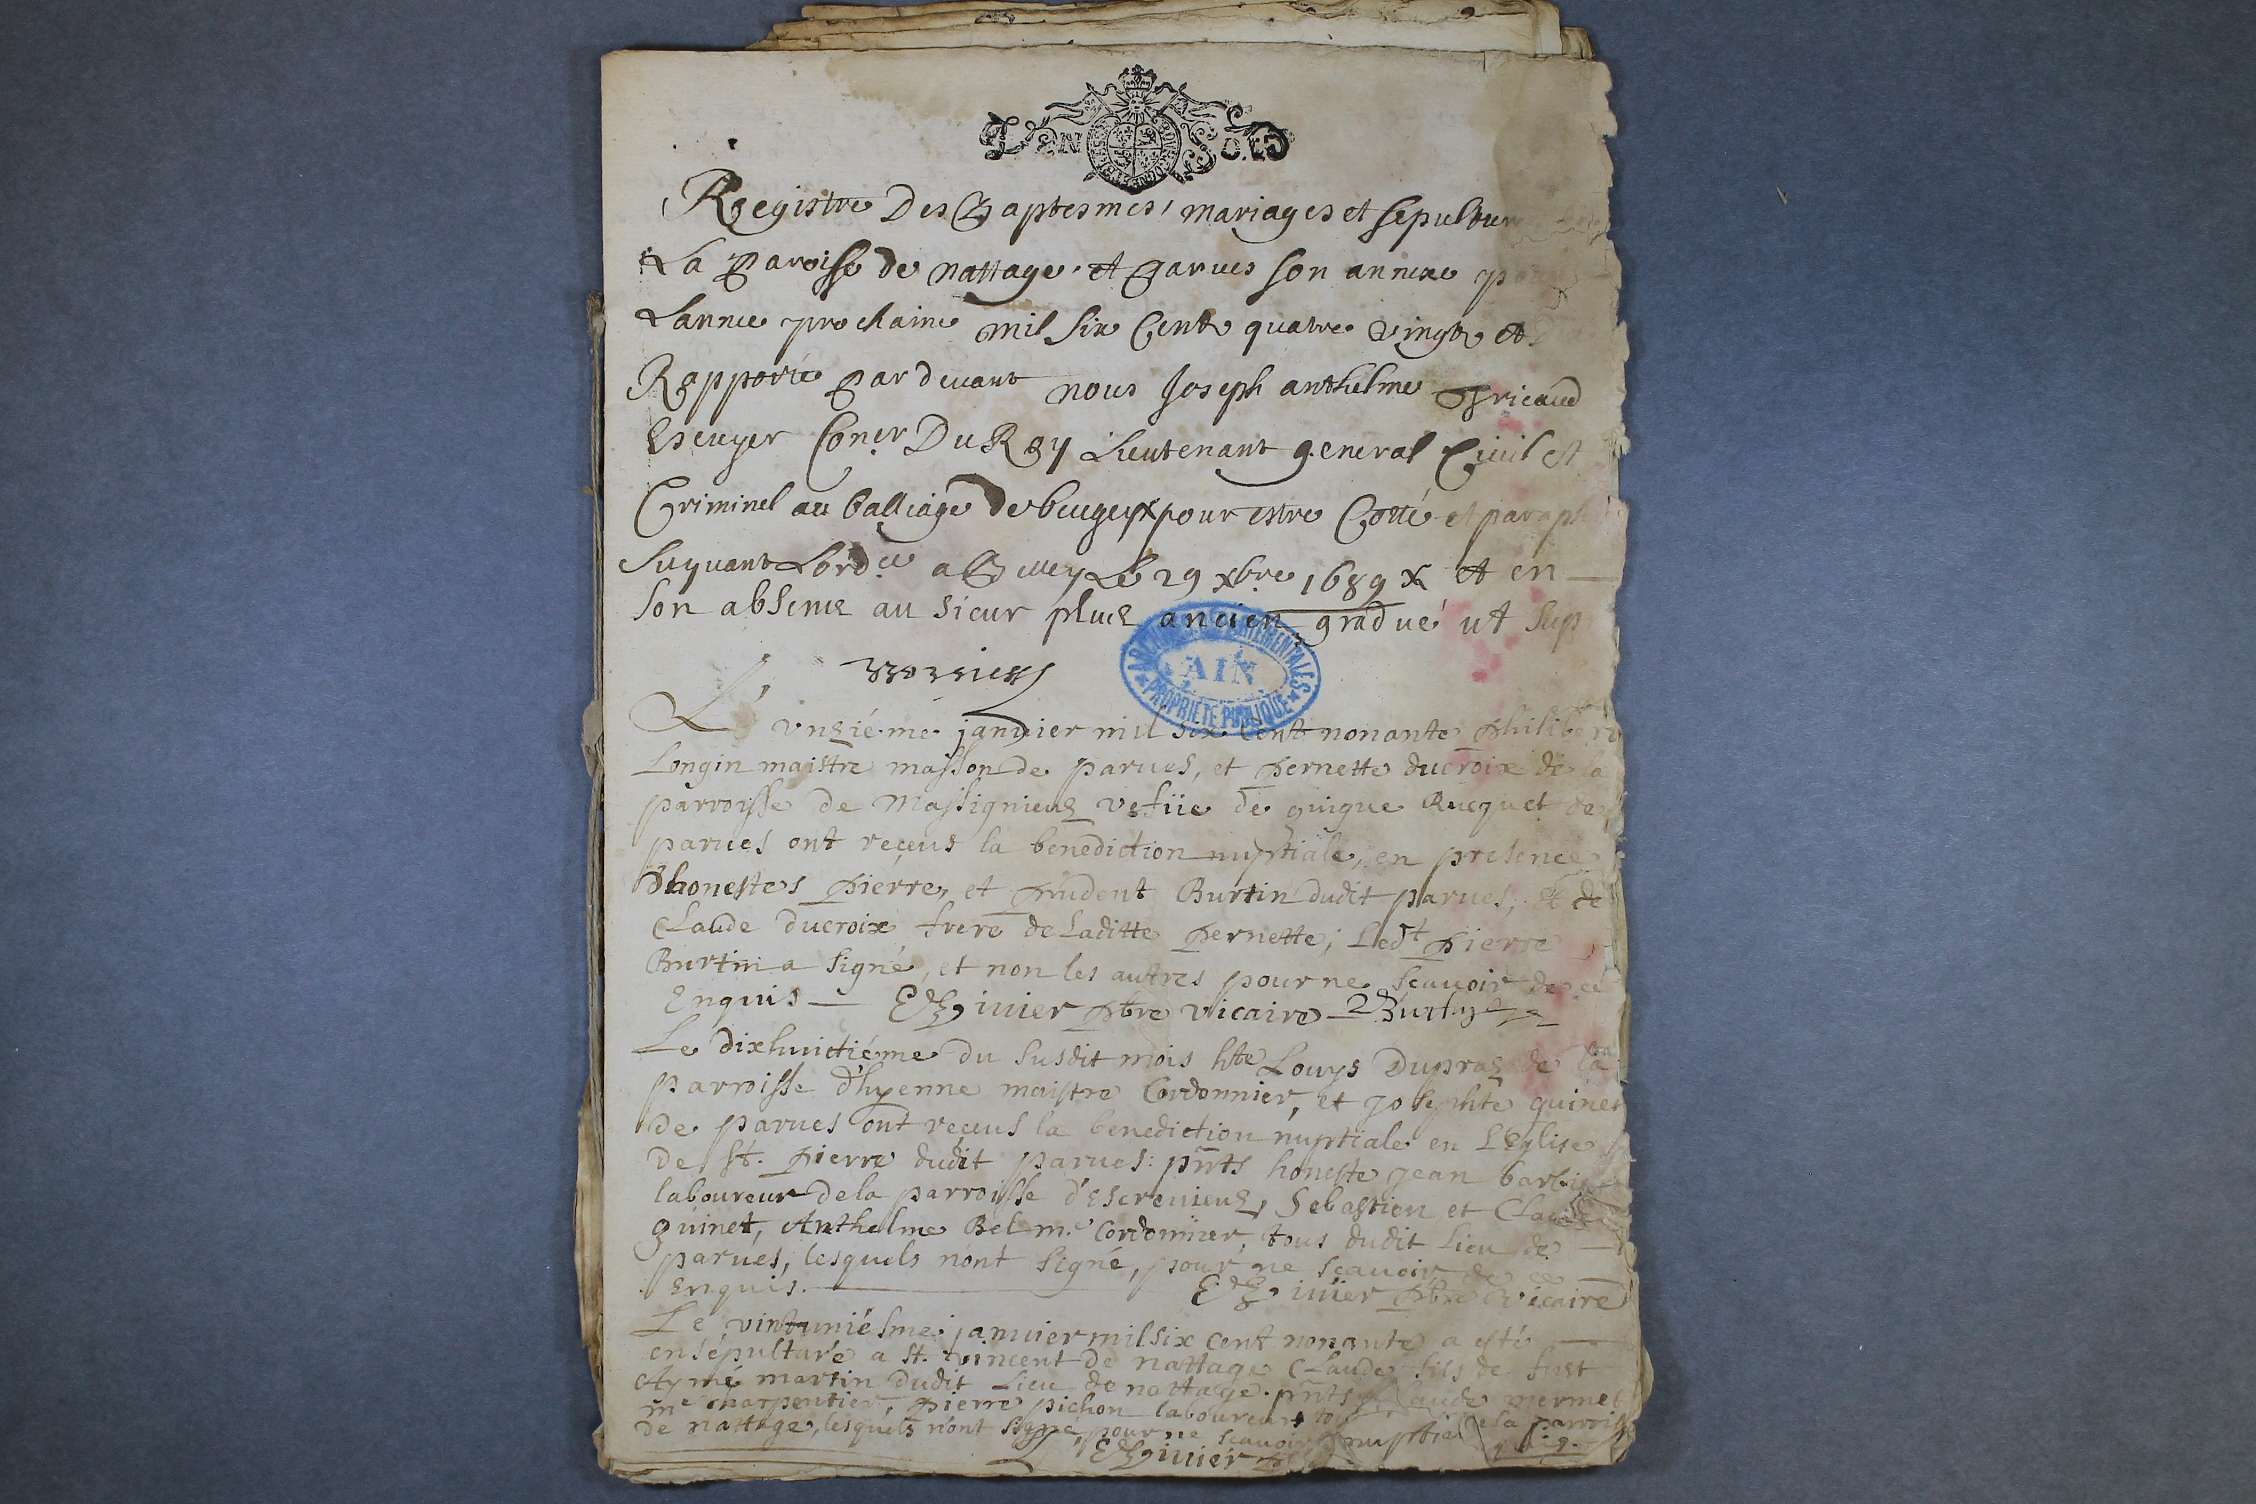 L'EN 8. D
Registre Des Baptesmes, mariages et sepultur
La paroisse de nattage et parues son annexe
Lannee prochaine mil six Cent quatre vingt et
Rapporté par deuant nous Joseph anthelme Tricaud
Escuyer Coner Du Roy Lieutenant general Ciuil et
Criminel au balliage de beugey pour estre Cotté et paraph
Suyuant Lordce a Belley Le 29 xbre 1689 x et en
son absence au sieur plus ancien gradué ut sup
ARCHIVES DEPARTEMENTALES
AIN
PROPRIETE PUBLIQUE
L' unziéme januier mil six Cent nonante philibert
Longin maistre masson de parues, et pernette ducroix de la
parroisse de Massignieuz vefüe de guigue Rucquet de
parues ont receus la benediction nuptiale, en presence
dhonestes pierre, et prudent Burtin dudit parues, et de
Claude ducroix frere de laditte pernette; Ledt pierre
Burtin a signé, et non les autres pour ne scauoir de ce
Enquis — iuier pbre vicaire Burtin
Le dixhuictiéme du susdit mois hte Louys Dupraz de la
parroisse d'hyenne maistre Cordonnier, et Josephte guinet
de parues ont receus la benediction nuptiale en L'Eglise
de St. pierre dudit parues: pnts honeste Jean barbi
laboureur de la parroisse d'Escreuieuz, Sebastien et Claude
guinet, Anthelme Bel me Cordonnier, tous dudit Lieu de
parues, lesquels n'ont signé, pour ne scauoir de ce
enquis. iuier pbre vicaire
Le vintuniésme januier mil six cent nonante a esté
ensépulturé a St. vincent de nattage Claude fils de fust
Aymé martin dudit Lieu de nattage. pnts Claude mermet
me charpentier, pierre pichon laboureur de la parroisse
de nattage, lesquels n'ont signé pour ne scauoir
iuier